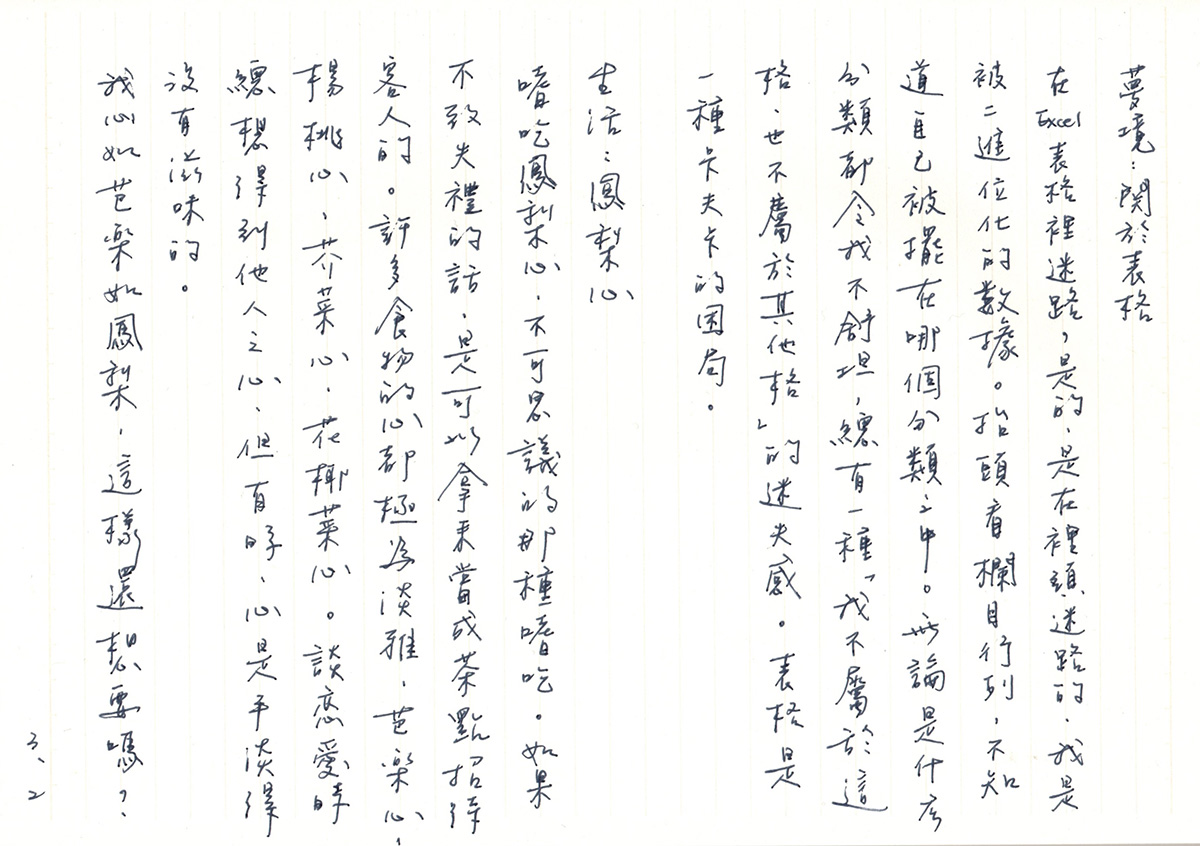 夢境：關於表格
在Excel表格裡迷路，是的，是在裡頭迷路的，我是
被二進位化的數據。抬頭看欄目行列，不知
道自己被擺在哪個分類之中。無論是什么
分類都令我不舒坦，總有一種「我不屬於這
格，也不屬於其他格」的迷失感。表格是
一種卡夫卡的困局。
生活：鳳梨心
嗜吃鳳梨心，不可思議的那種嗜吃。如果
不致失禮的話，是可以拿來當成茶點招待
客人的。許多食物的心都極為淡雅，芭樂心，
楊桃心，芥菜心，花椰菜心。談戀愛時
總想得到他人之心，但有時，心是平淡得
沒有滋味的。
我心如芭樂如鳳梨，這樣還想要嗎？
3、2